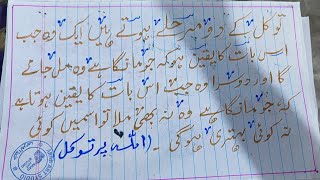 توکل کے دو مرحلے ہوتے ہیں ایک وہ جب
اس بات کا یقین ہو کہ جو مانگا ہے وہ مل جائے
گا اور دوسرا وہ جب اس بات کا یقین ہوتا ہے
کہ جو مانگا ہے وہ نہ بھی ملا تو اسمیں کوئی
نہ کوئی بہتری ہوگی ۔ (اللہ پر توکل)